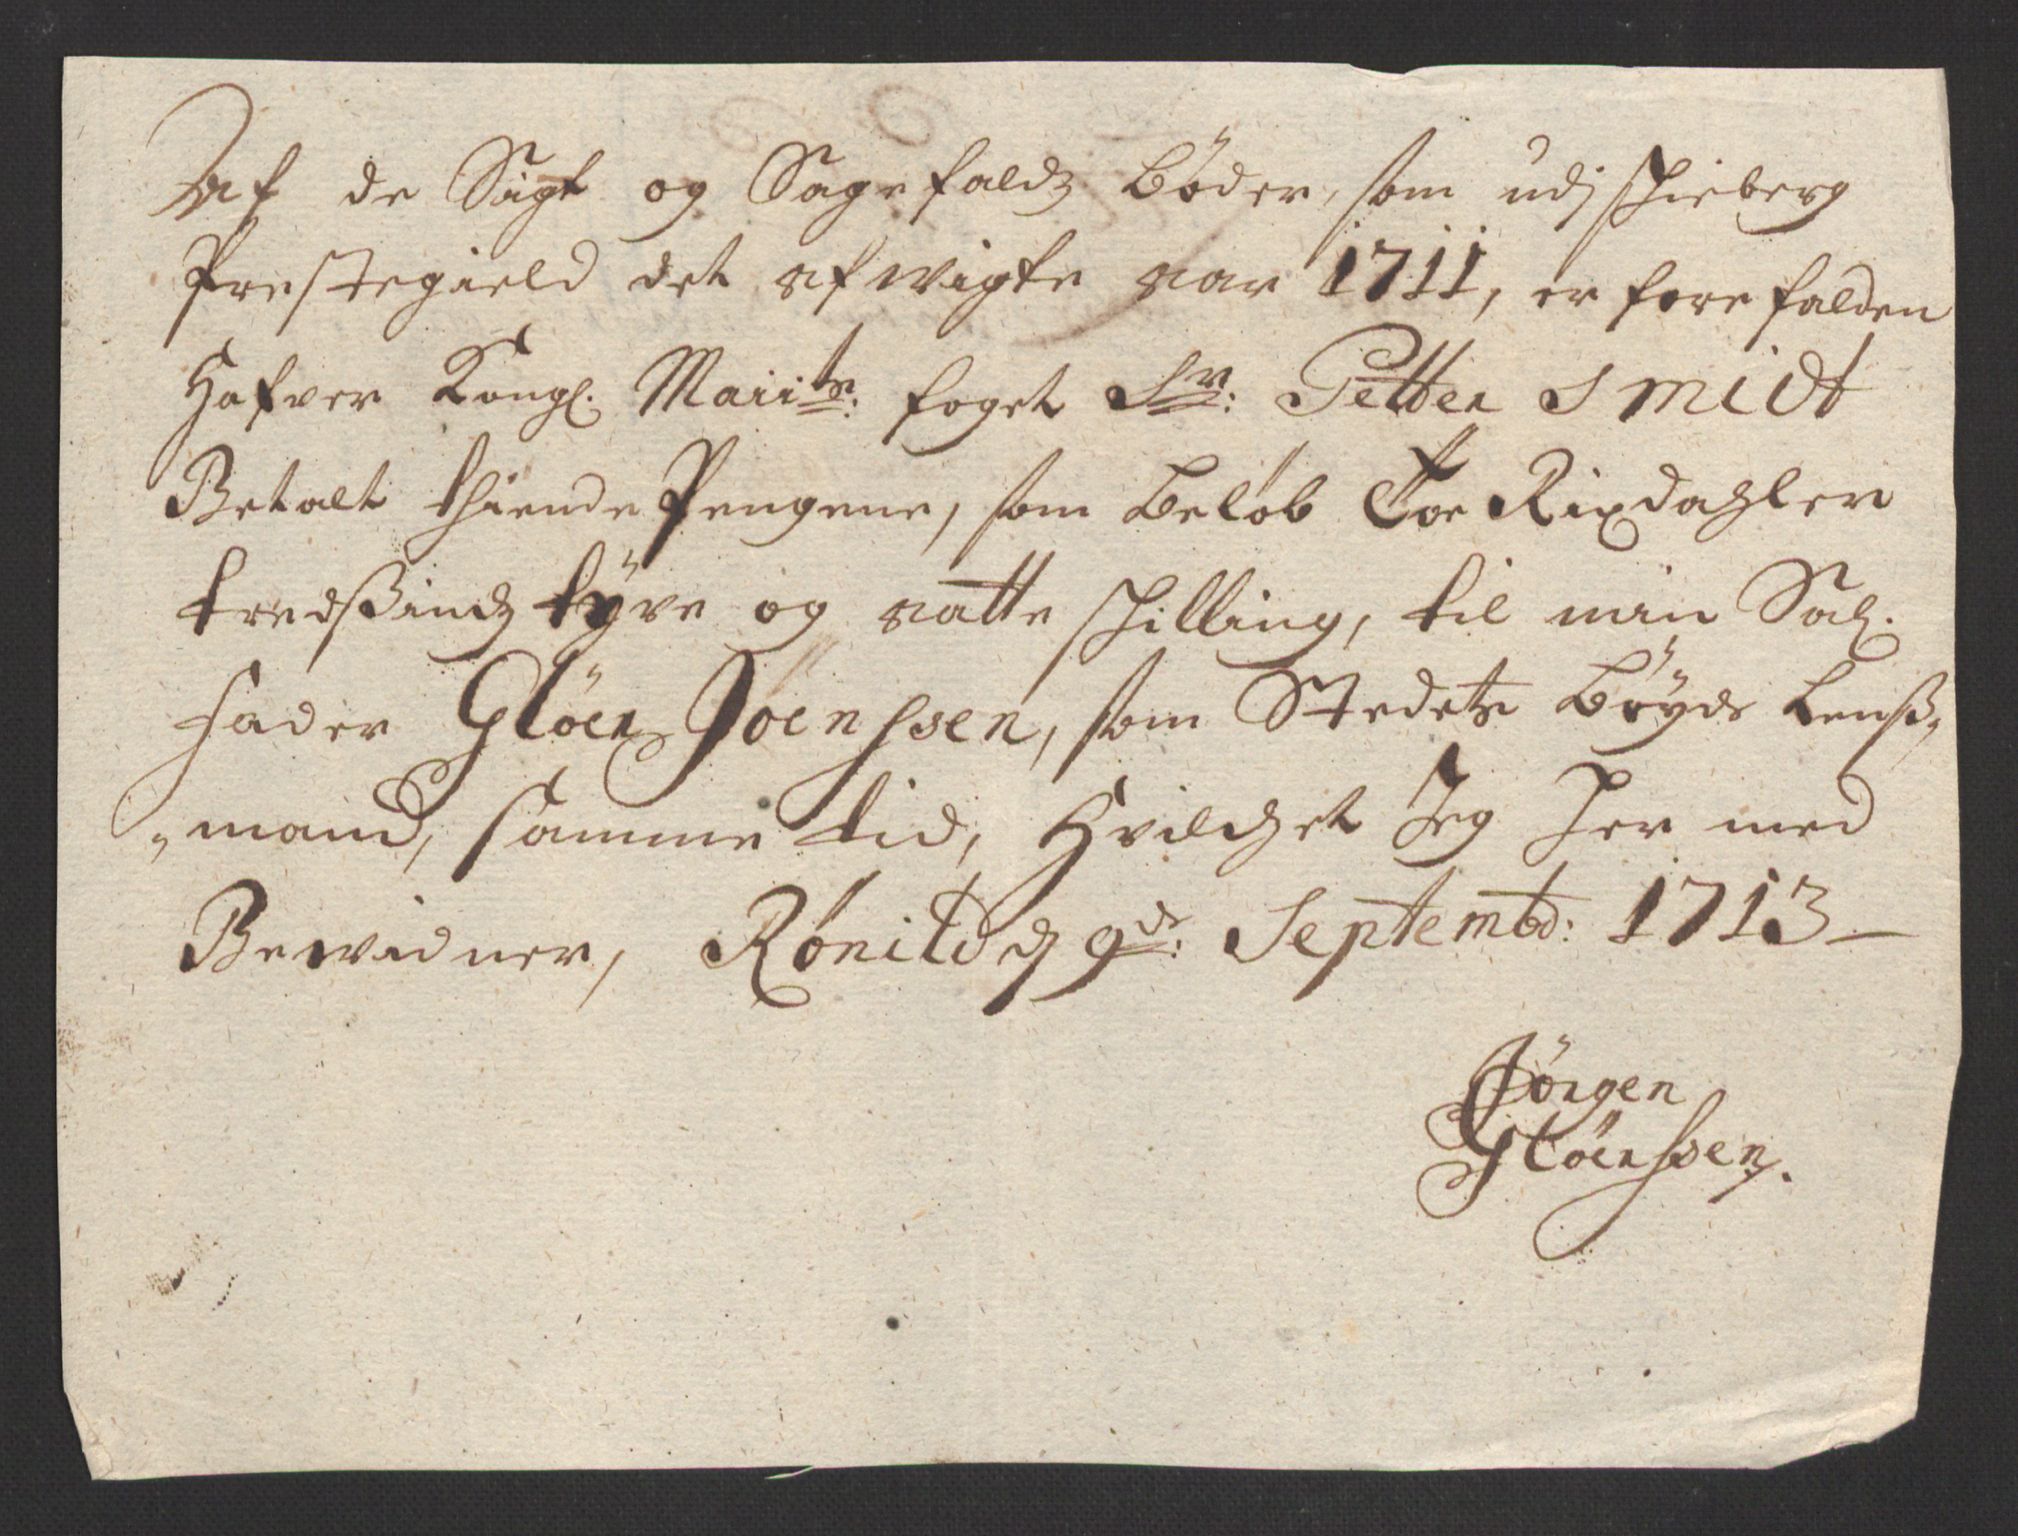 Af de Sigt og Sagefaldz Bøder, som udj schieberg
Prestegield det afwigte aar 1711, er forefalden
Hafver Kongl. Maiits: foget Sr: Petter Smidt
Betalt thiende Pengene, som Beløb Toe Rixdahler
tredsßindz tÿve og aatte schilling, til min Sal.
fader Glöer Joenssen, som Stedets Böÿde Lenß„
„mand, samme tid, Hvilchet Jeg her med
Bewidner, Rönild d 9de: Septembd: 1713 —
Jörgen
Glöerssen.